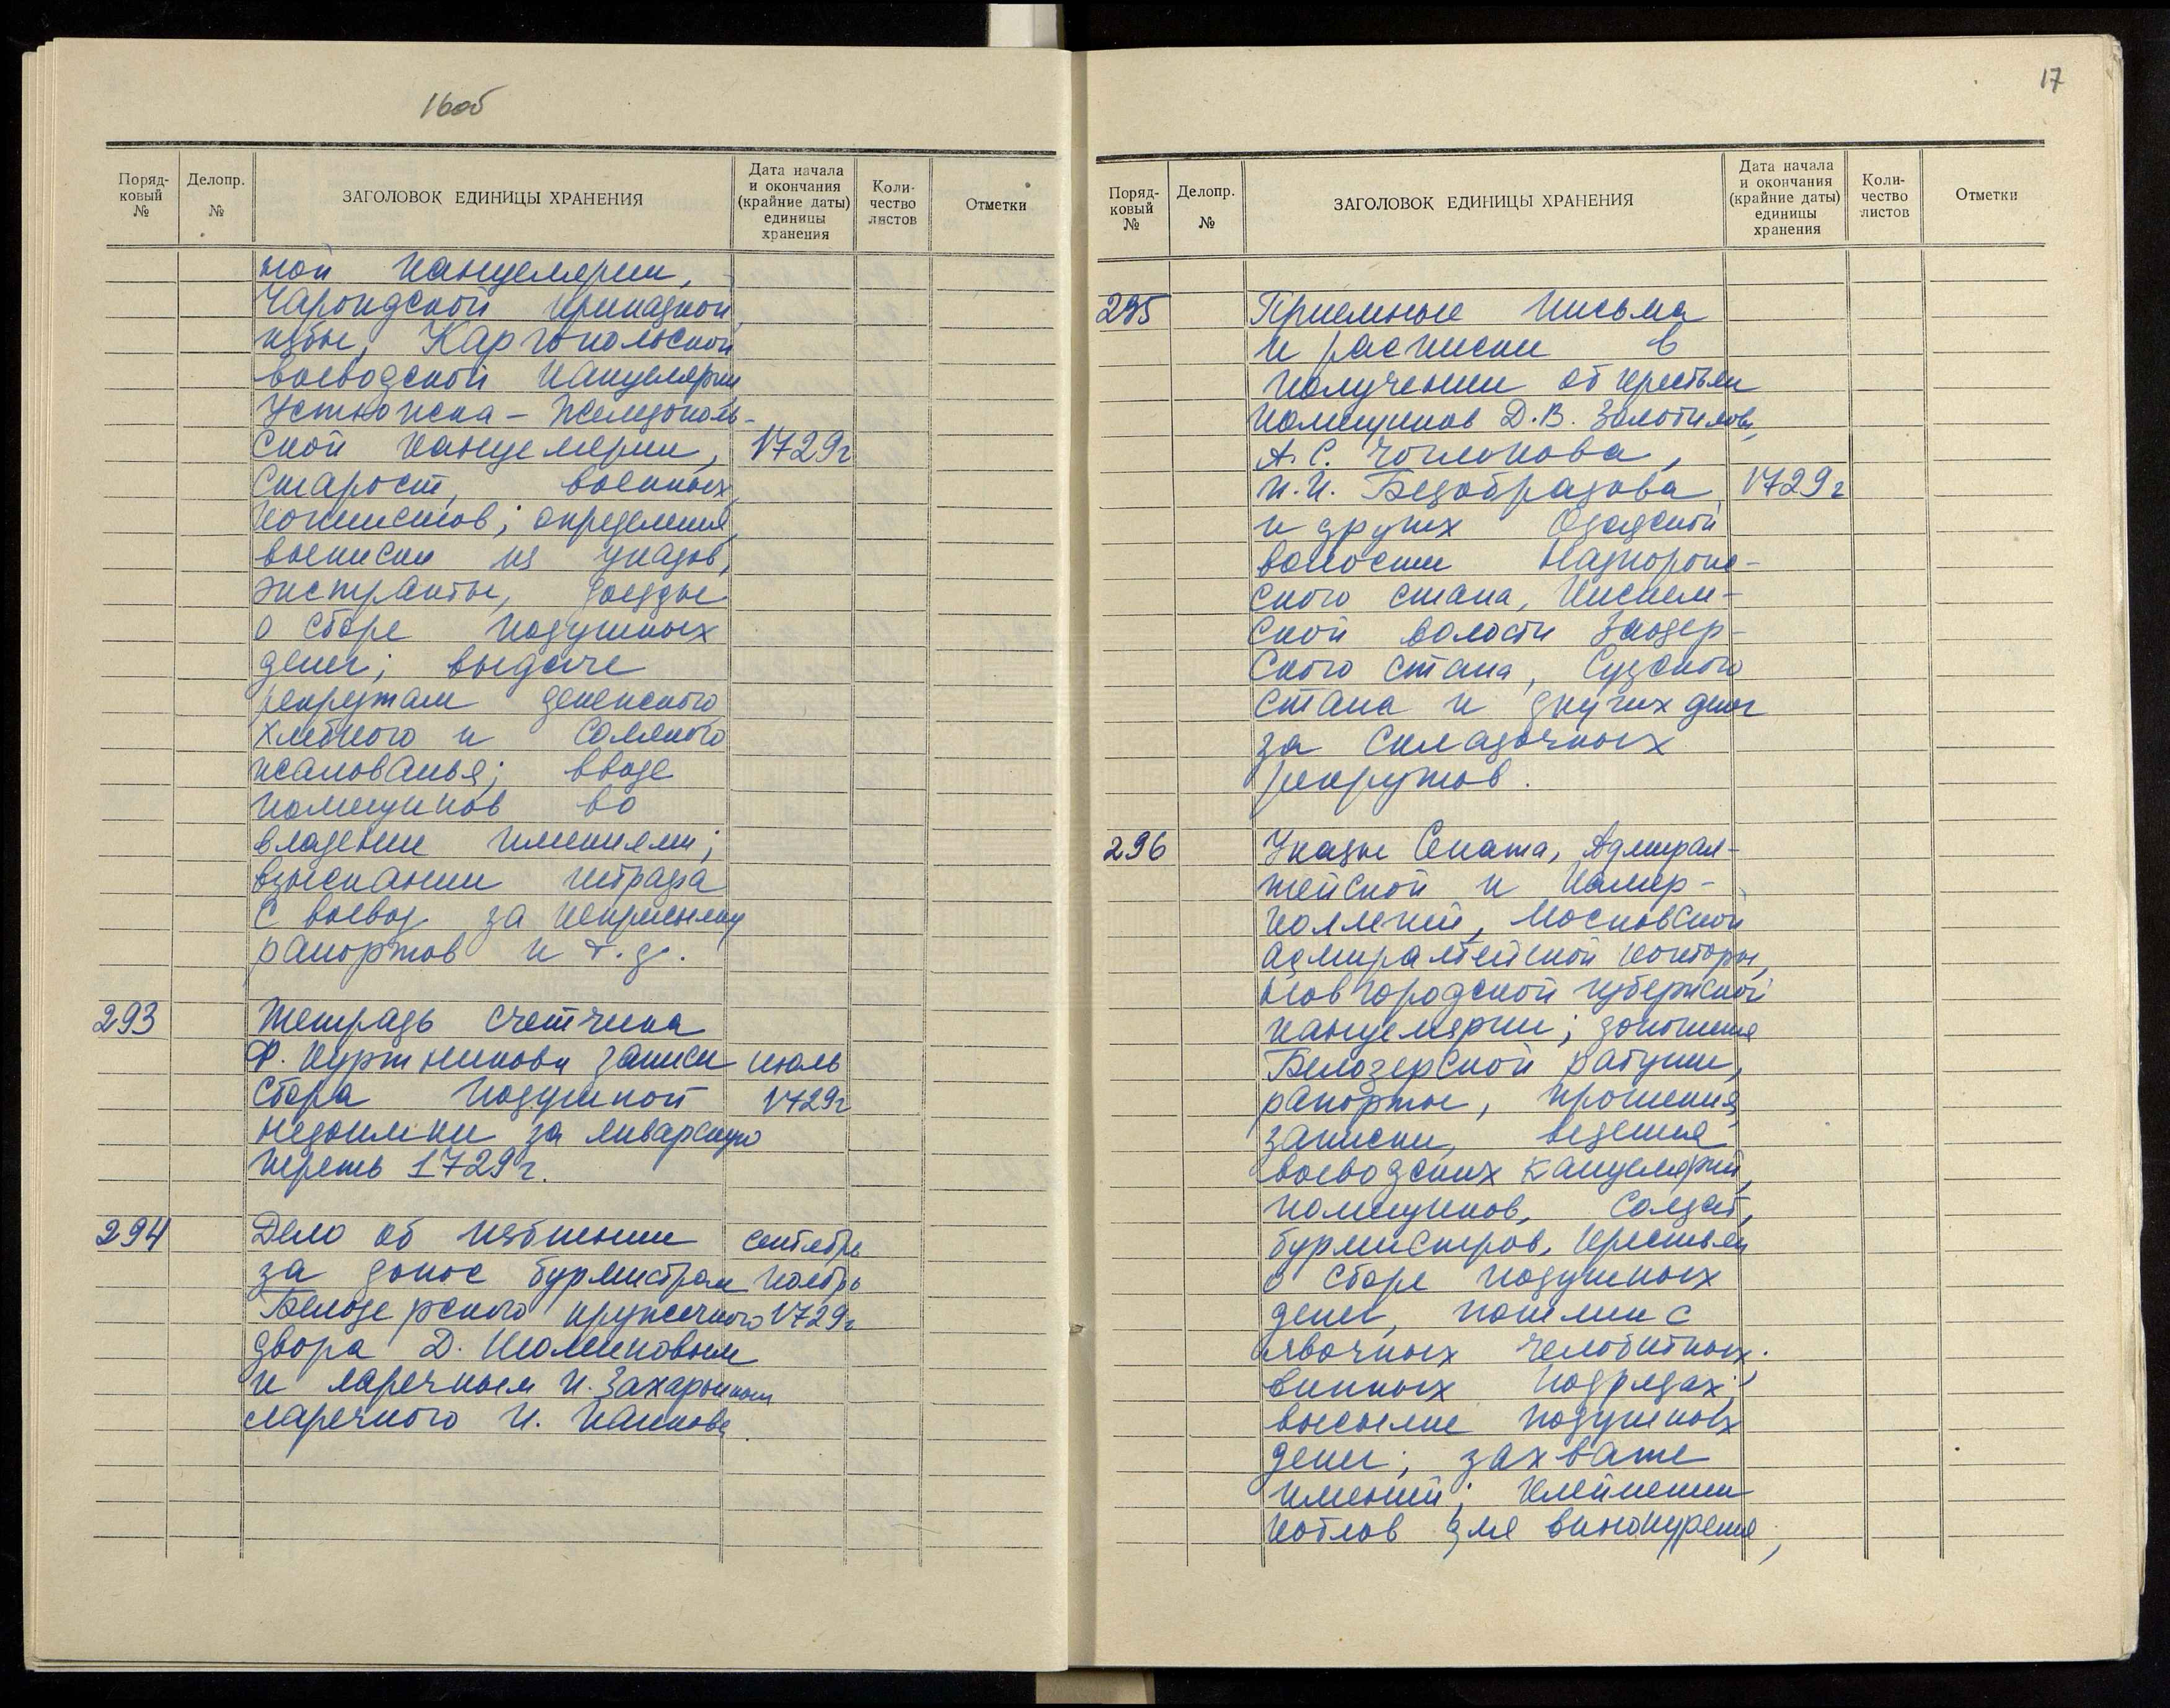 16об
Поряд-
ковый
№
Делопр.
№
ЗАГОЛОВОК ЕДИНИЦЫ ХРАНЕНИЯ
Дата начала
и окончания
(крайние даты)
единицы
хранения
Коли-
чество
листов
Отметки
ной канцелярии,
Чарондской приказной
избы, Каргопольской
воеводской канцелярии
Устюжска-Железополь-
ской канцелярии, 1729г
старост, военных
; определения,
выписки из указов,
экстракты, доезды
о сборе подушных
денег; выдаче
рекрутам денежного
хлебного и соляного
жалованья; вводе
помещиков во
владение имениями;
взыскании штрафа
с воевод за неприсылку
рапортов и т.д.
293 Тетрадь счетчика
Ф. записи июль
сбора подушной 1729г
недоимки за январскую
треть 1729г.
294 Дело об избиении сентябрь
за донос бурмистром ноябрь
Белозерского кружечного 1729г
двора Д.
и ларечным И. Захарьиным
ларечного И.
17
Поряд-
ковый
№
Делопр.
№
ЗАГОЛОВОК ЕДИНИЦЫ ХРАНЕНИЯ
Дата начала
и окончания
(крайние даты)
единицы
хранения
Коли-
чество
листов
Отметки
295 Приемные письма
и расписки в
получении от крестьян
помещиков Д.В. Золотилова,
А.С. Чоглокова,
И.И. Безобразова 1729г
и других Озадской
волости Надпорож-
ского стана,
ской волости Заозер-
ского стана, Судского
стана и других денег
за складочных
рекрутов.
296 Указы Сената, Адмирал-
тейской и Камер-
коллегий, Московской
адмиралтейской конторы,
Новгородской губернской
канцелярии; доношения
Белозерской ратуши,
рапорты, прошения,
записки, ведения
воеводских канцелярий,
помещиков, солдат,
бурмистров, крестьян
о сборе подушных
денег, пошлин с
явочных челобитных;
винных подрядах;
высылке подушных
денег; захвате
имений; клеймении
котлов для винокурения,